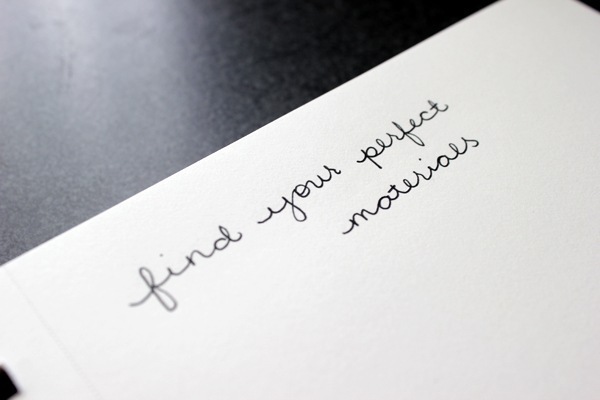 find your perfect
materials